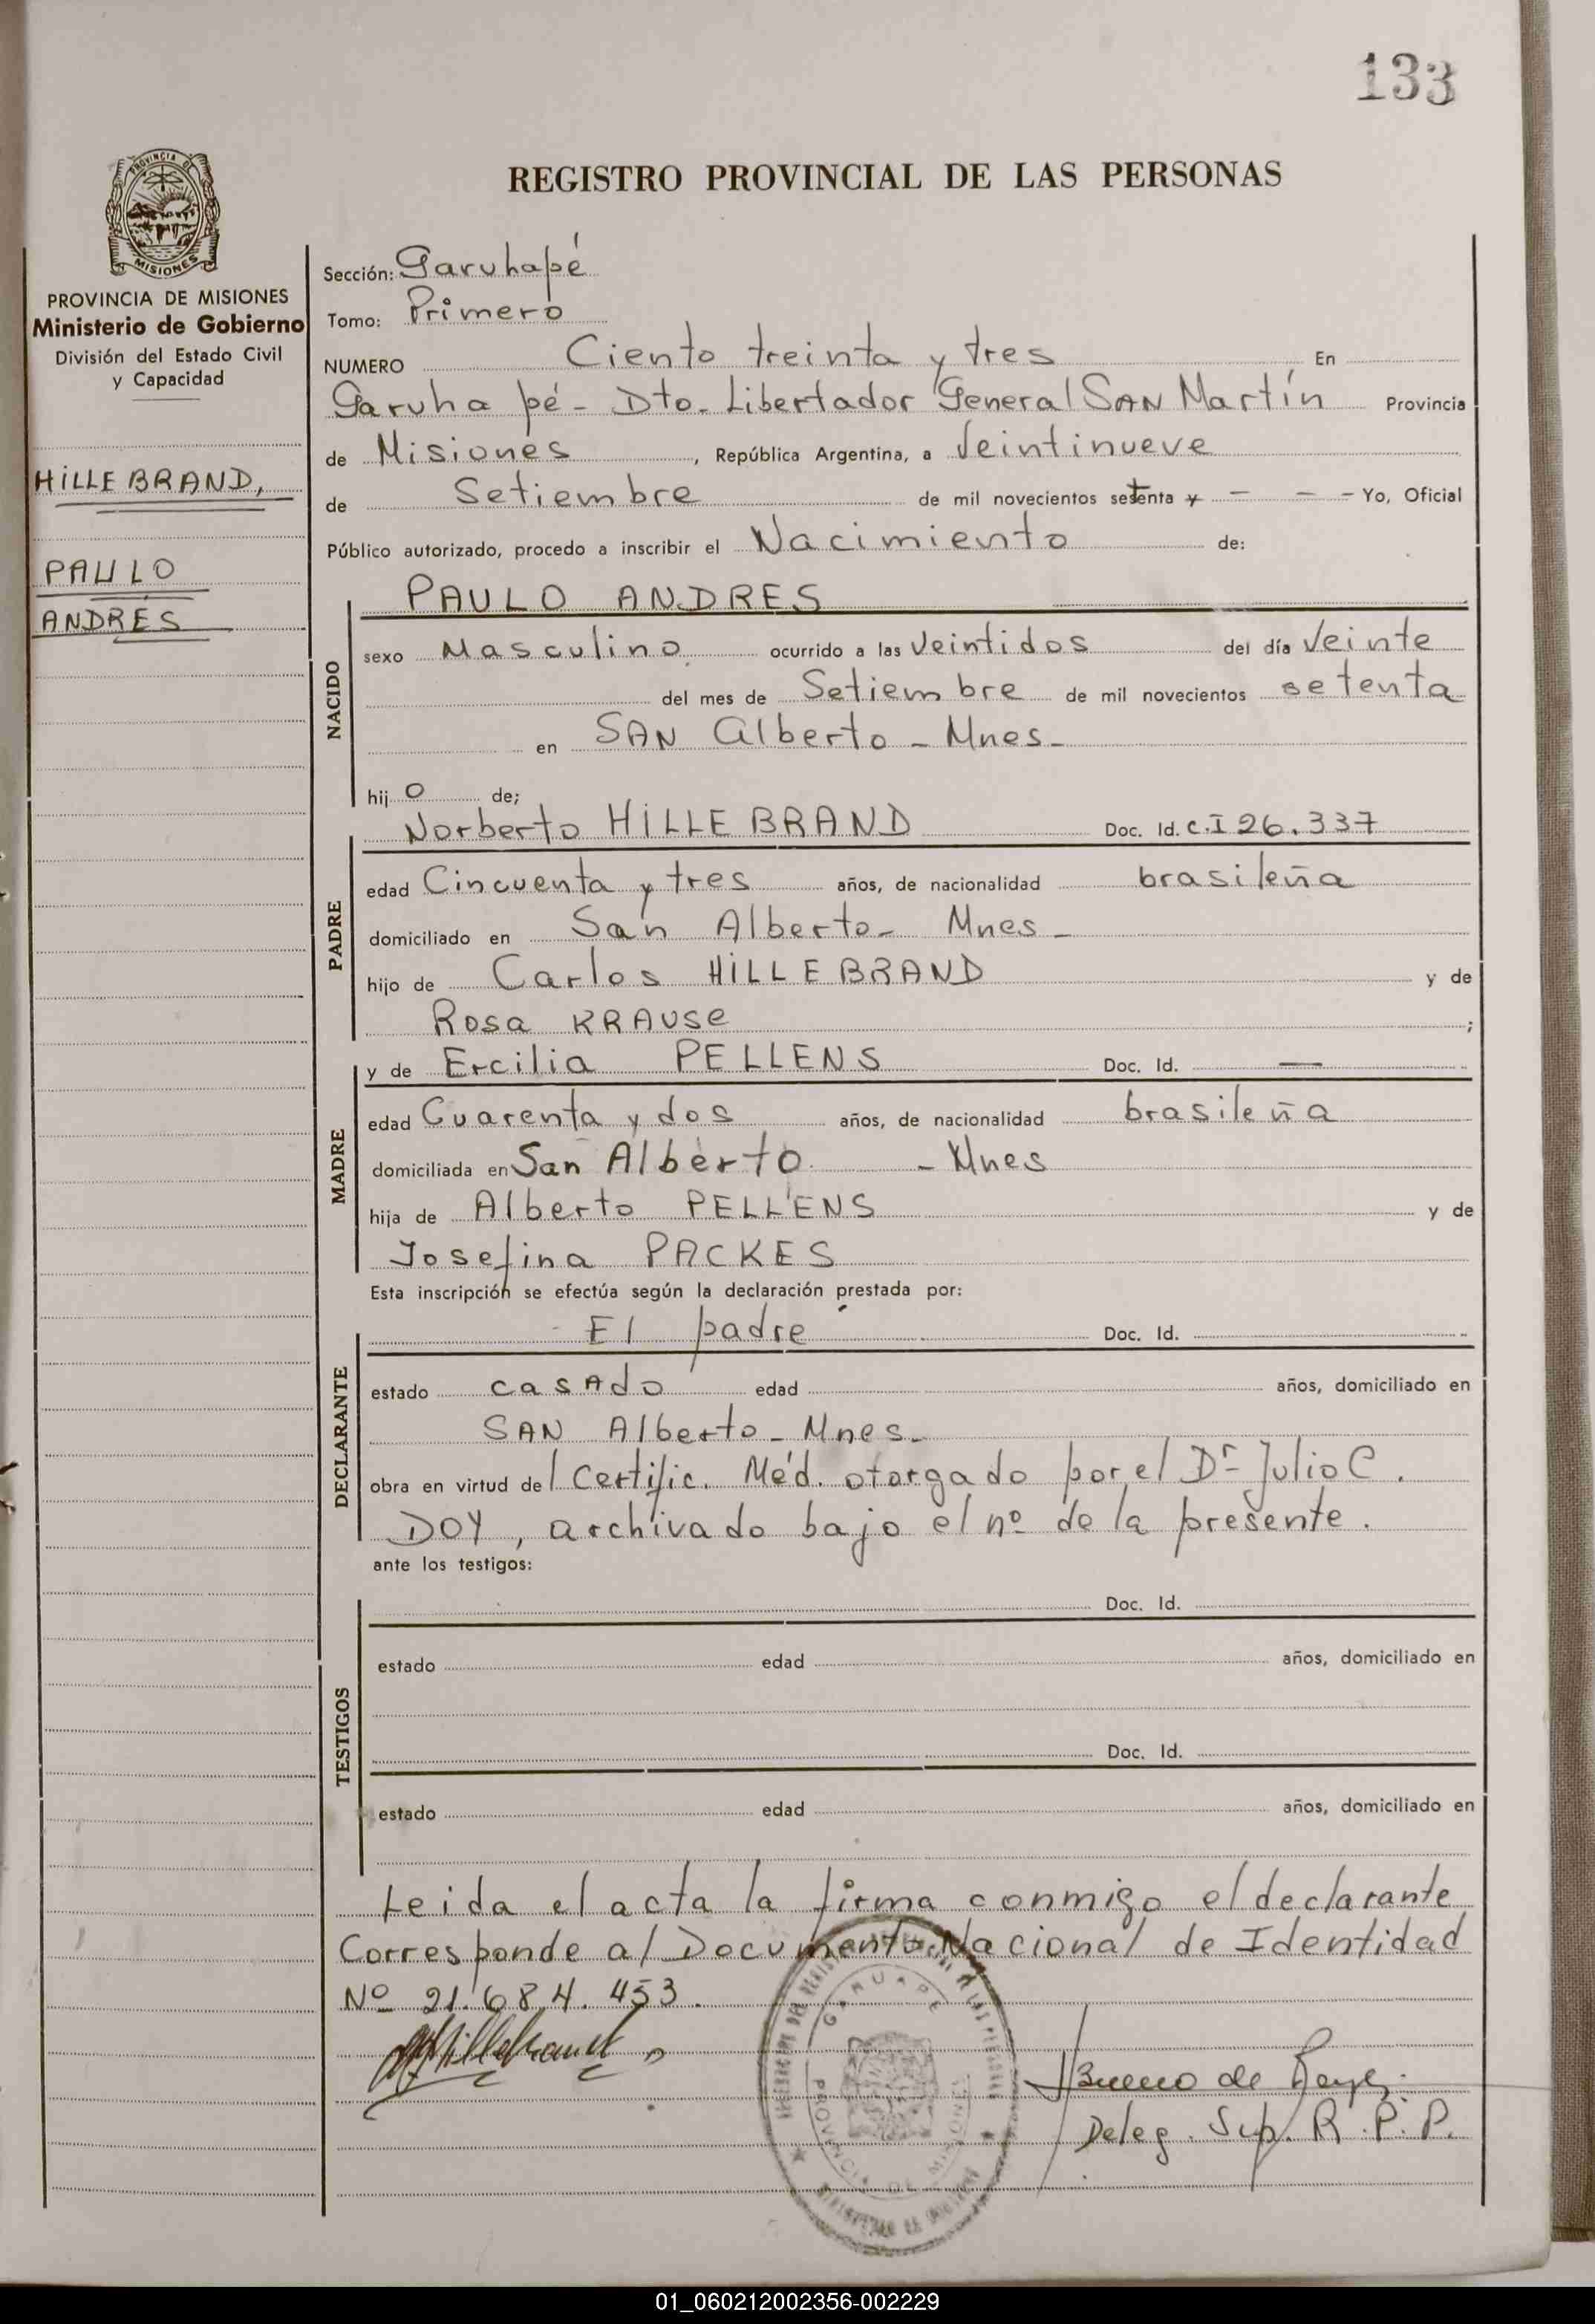 133
REGISTRO PROVINCIAL DE LAS PERSONAS
PROVINCIA DE MISIONES
Ministerio de Gobierno
División del Estado Civil
y Capacidad
HILLEBRAND,
PAULO
ANDRES
Sección: Garuhapé
Tomo: Primero
NUMERO Ciento treinta y tres En
Garuhapé - Dto. Libertador General SAN Martín Provincia
de Misiones, República Argentina, a Veintinueve
de Setiembre de mil novecientos setenta y - - - Yo, Oficial
Público autorizado, procedo a inscribir el Nacimiento de:
NACIDO
PAULO ANDRES
sexo Masculino ocurrido a las Veintidos del día Veinte
del mes de Setiembre de mil novecientos setenta
en SAN Alberto - Mnes-
hijo de;
PADRE
Norberto HILLEBRAND Doc. Id. C.I 26.337
edad Cincuenta y tres años, de nacionalidad brasileña
domiciliado en San Alberto - Mnes -
hijo de Carlos HILLEBRAND y de
Rosa KRAUSe ;
MADRE
y de Ercilia PELLENS Doc. Id. —
edad Cuarenta y dos años, de nacionalidad brasileña
domiciliada en San Alberto - Mnes
hija de Alberto PELLENS y de
Josefina PACKES
Esta inscripción se efectúa según la declaración prestada por:
DECLARANTE
El padre Doc. Id.
estado casado edad años, domiciliado en
SAN Alberto - Mnes -
obra en virtud del Certific. Méd. otorgado por el Dr- Julio C.
DOY, archivado bajo el nº de la presente.
ante los testigos:
TESTIGOS
Doc. Id.
estado edad años, domiciliado en
Doc. Id.
estado edad años, domiciliado en
Leida el acta la firma conmigo el declarante
Corresponde al Documento Nacional de Identidad
Nº 21.684.453.
Hillebrand
Bueno de
Deleg. Sup. R.P.P.
PROVINCIA DE MISIONES
01_060212002356-002229